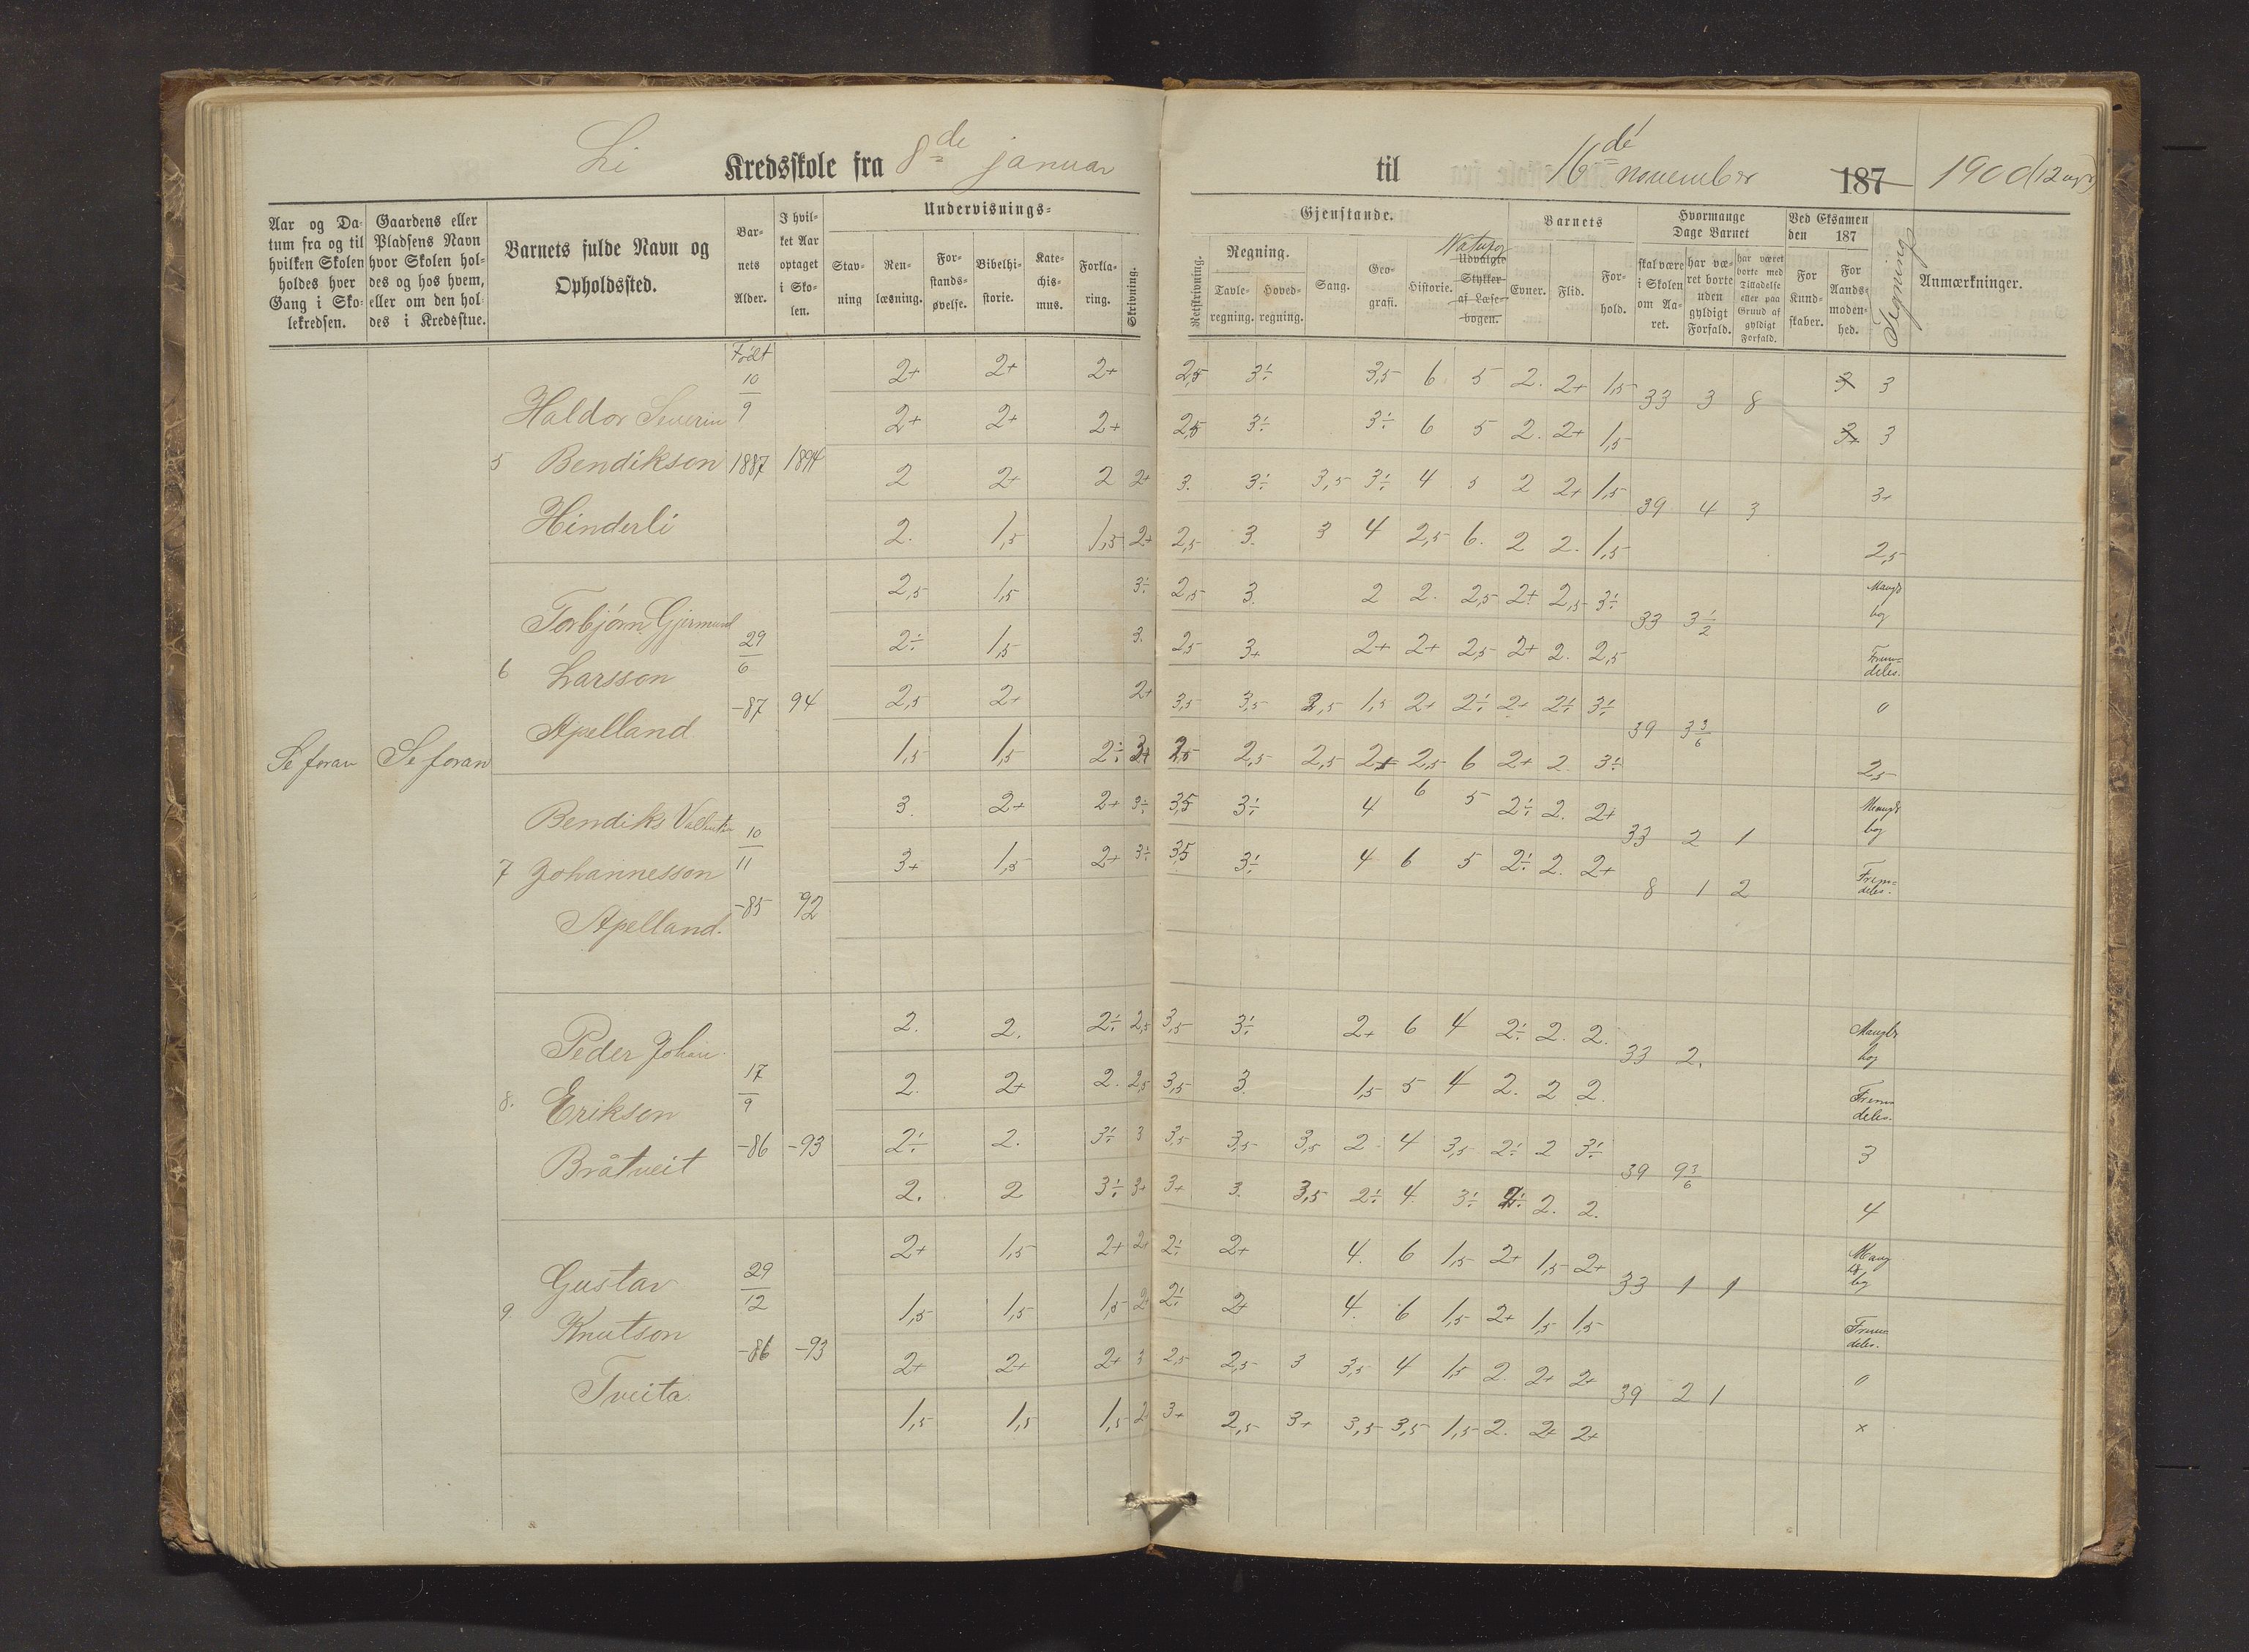 Li Kredsskole fra 8de januar til 16de november 187 1900 (12 uger)
Aar og Da-
tum fra og til
hvilken Skolen
holdes hver
Gang i Sko-
lekredsen.
Gaardens eller
Pladsens Navn
hvor Skolen hol-
des og hos hvem,
eller om den hol-
des i Kredsstue.
Barnets fulde Navn og
Opholdssted.
Bar-
nets
Alder.
I hvil-
ket Aar
optaget
i Sko-
len.
Undervisnings-
Stav-
ning
Ren-
læsning.
For-
stands-
øvelse.
Bibelhi-
storie.
Kate-
chis-
mus.
Forkla-
ring.
Skrivning.
Gjenstande.
Retskrivning.
Regning.
Tavle-
regning.
Hoved-
regning.
Sang.
Geo-
grafi.
Historie.
Naturf
Udvalgte
Stykker
af Læse-
bogen.
Barnets
Evner.
Flid.
For-
hold.
Hvormange
Dage Barnet
skal være
i Skolen
om Aa-
ret.
har væ-
ret borte
uden
gyldigt
Forfald.
har været
borte med
Tilladelse
eller paa
Grund af
gyldigt
Forfald.
Ved Eksamen
den 187
For
Kund-
skaber.
For
Aands-
moden-
hed.
Tegning
Anmærkninger.
Se foran Se foran
Født
5 Haldor Severin
Bendikson
Hinderli
10/9
1887 1894
2+ 2+ 2+ 2,5 3÷ 3,5 6 5 2. 2+ 1,5 33 3 8 3 3
2+ 2+ 2+ 2,5 3÷ 3÷ 6 5 2. 2+ 1,5 3+ 3
2 2+ 2 2+ 3. 3÷ 3,5 3÷ 4 5 2 2+ 1,5 39 4 3 3+
2. 1,5 1,5 2+ 2,5 3. 3 4 2,5 6. 2 2. 1,5 2,5
6 Torbjørn Gjermund
Larsson
Apelland
29/6
-87 94
2,5 1,5 3÷ 2,5 3. 2 2. 2,5 2+ 2,5 3÷ 33 3 1/2 Mangl
bog
2÷ 1,5 3. 2,5 3+ 2+ 2+ 2,5 2+ 2. 2,5 Frem-
deles.
2,5 2+ 2+ 3,5 3,5 2,5 1,5 2+ 2÷ 2+ 2÷ 3÷ 39 3 3/6 0
1,5 1,5 2÷ 3+ 2,5 2,5 2,5 2+ 2,5 6 2+ 2. 3÷ 2,5
7 Bendiks
Johannesson
Apelland.
10/11
-85 92
3. 2+ 2+ 3÷ 3,5 3÷ 4 6 5 2÷ 2. 2+ 33 2 1 Mangl
bog
3+ 1,5 2+ 3÷ 3,5 3÷ 4 6 5 2÷ 2. 2+ 8 1 2 Frem-
deles.
8. Peder Johan
Erikson
Bråtveit
17/9
-86 -93
2. 2. 2÷ 2,5 3,5 3÷ 2+ 6 4 2÷ 2. 2. 33 2. Mangler
bog
2. 2+ 2. 2,5 3,5 3. 1,5 5 4 2. 2 2. Frem
deles.
2÷ 2. 3÷ 3 3,5 3,5 3,5 2 4 3,5 2÷ 2 3÷ 39 9 3/6 3
2. 2 3÷ 3+ 3+ 3. 3,5 2÷ 4. 3÷ 2÷ 2. 2. 4
9. Gustav
Knutson
Tveita
29/12
-86 -93
2+ 1,5 2+ 2+ 2÷ 2+ 4. 6 1,5 2+ 1,5 2+ 33 1 1 Mang
bog
1,5 1,5 1,5 2÷ 2÷ 2+ 4. 6 1,5 2+ 1,5 1,5 Frem-
deles.
2+ 2+ 2+ 3 2,5 2,5 3 3,5 4 1,5 2. 2+ 2+ 39 2 1 0
1,5 1,5 1,5 2 3+ 2,5 3+ 3,5 3,5 1,5 2. 2+ 2+ x